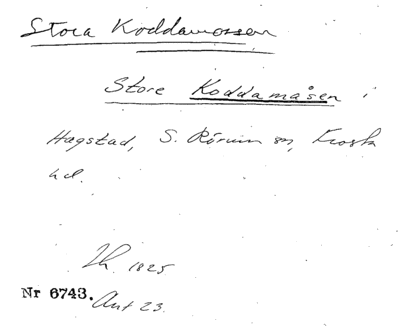 Stora Koddamossen
Store Koddamåsen i
Hagstad, S. Rörum sn, Frosta
hd.
Lh. 1825
Nr 6743. Ant 23.